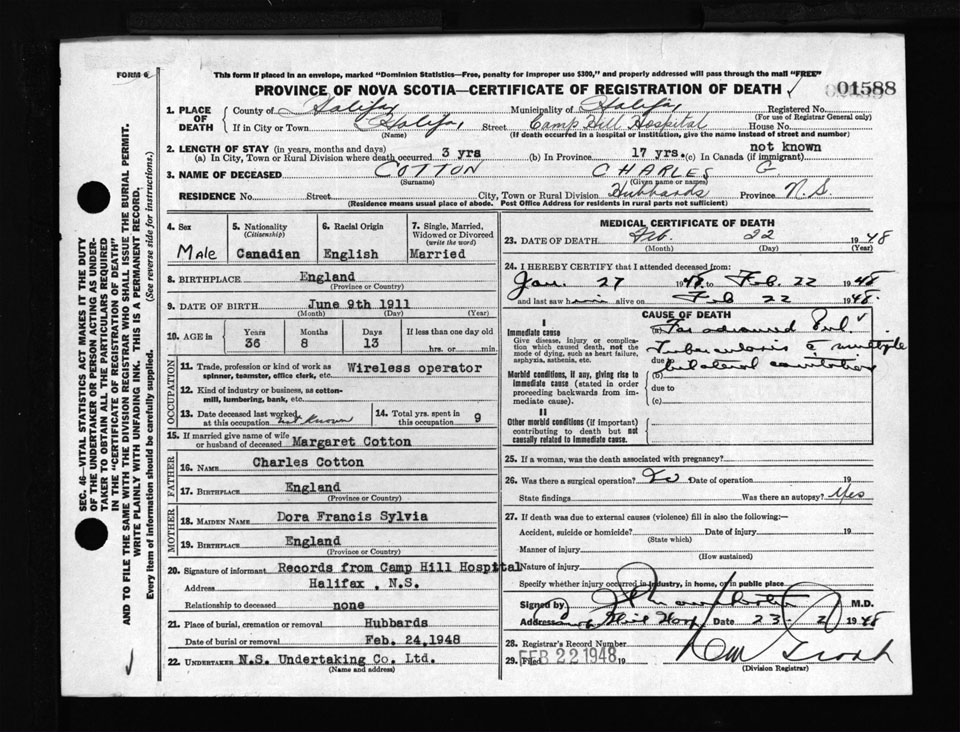 FORM 6
This form if placed in an envelope, marked "Dominion Statistics—Free, penalty for improper use $300," and properly addressed will pass through the mail "FREE"
PROVINCE OF NOVA SCOTIA—CERTIFICATE OF REGISTRATION OF DEATH
01588
1. PLACE OF DEATH { County of Halifax Municipality of Halifax Registered No.
(For use of Registrar General only)
If in City or Town Halifax Street Camp Hill Hospital House No.
(Name) (If death occurred in a hospital or institution, give the name instead of street and number)
2. LENGTH OF STAY (in years, months and days)
(a) In City, Town or Rural Division where death occurred 3 yrs (b) In Province 17 yrs. (c) In Canada (if immigrant) not known
3. NAME OF DECEASED COTTON CHARLES G
(Surname) (Given name or names)
RESIDENCE No. Street City, Town or Rural Division Hubbards Province N.S.
(Residence means usual place of abode. Post Office Address for residents in rural parts not sufficient)
SEC. 46—VITAL STATISTICS ACT MAKES IT THE DUTY
OF THE UNDERTAKER OR PERSON ACTING AS UNDER-
TAKER TO OBTAIN ALL THE PARTICULARS REQUIRED
IN THE "CERTIFICATE OF REGISTRATION OF DEATH"
AND TO FILE THE SAME WITH THE DIVISION REGISTRAR WHO SHALL ISSUE THE BURIAL PERMIT.
WRITE PLAINLY WITH UNFADING INK. THIS IS A PERMANENT RECORD.
Every item of information should be carefully supplied. (See reverse side for instructions.)
4. Sex Male
5. Nationality (Citizenship) Canadian
6. Racial Origin English
7. Single, Married, Widowed or Divorced (write the word) Married
8. BIRTHPLACE England
(Province or Country)
9. DATE OF BIRTH June 9th 1911
(Month) (Day) (Year)
10. AGE in { Years 36 Months 8 Days 13 If less than one day old
hrs. or min.
OCCUPATION
11. Trade, profession or kind of work as spinner, teamster, office clerk, etc. Wireless operator
12. Kind of industry or business, as cotton-mill, lumbering, bank, etc.
13. Date deceased last worked at this occupation not known
14. Total yrs. spent in this occupation 9
15. If married give name of wife or husband of deceased Margaret Cotton
FATHER
16. NAME Charles Cotton
17. BIRTHPLACE England
(Province or Country)
MOTHER
18. MAIDEN NAME Dora Francis Sylvia
19. BIRTHPLACE England
(Province or Country)
20. Signature of informant Records from Camp Hill Hospital
Address Halifax, N.S.
Relationship to deceased none
21. Place of burial, cremation or removal Hubbards
Date of burial or removal Feb. 24, 1948
22. UNDERTAKER N.S. Undertaking Co. Ltd.
(Name and address)
MEDICAL CERTIFICATE OF DEATH
23. DATE OF DEATH Feb. 22 1948
(Month) (Day) (Year)
24. I HEREBY CERTIFY that I attended deceased from:
Jan. 27 1948 to Feb. 22 1948
and last saw him alive on Feb 22 1948.
CAUSE OF DEATH
I
Immediate cause
Give disease, injury or complication which caused death, not the mode of dying, such as heart failure, asphyxia, asthenia, etc.
(a) Far advanced Pul.
Tuberculosis c multiple
due to bilateral cavitation
Morbid conditions, if any, giving rise to immediate cause (stated in order proceeding backwards from immediate cause).
(b)
due to
(c)
II
Other morbid conditions (if important) contributing to death but not causally related to immediate cause.
25. If a woman, was the death associated with pregnancy?
26. Was there a surgical operation? Date of operation 19
State findings Was there an autopsy? Yes
27. If death was due to external causes (violence) fill in also the following:—
Accident, suicide or homicide? Date of injury 19
(State which)
Manner of injury
(How sustained)
Nature of injury
Specify whether injury occurred in industry, in home, or in public place
Signed by M.D.
Address Camp Hill Hosp Date 23-2 1948
28. Registrar's Record Number
29. Filed FEB 22 1948 19
(Division Registrar)